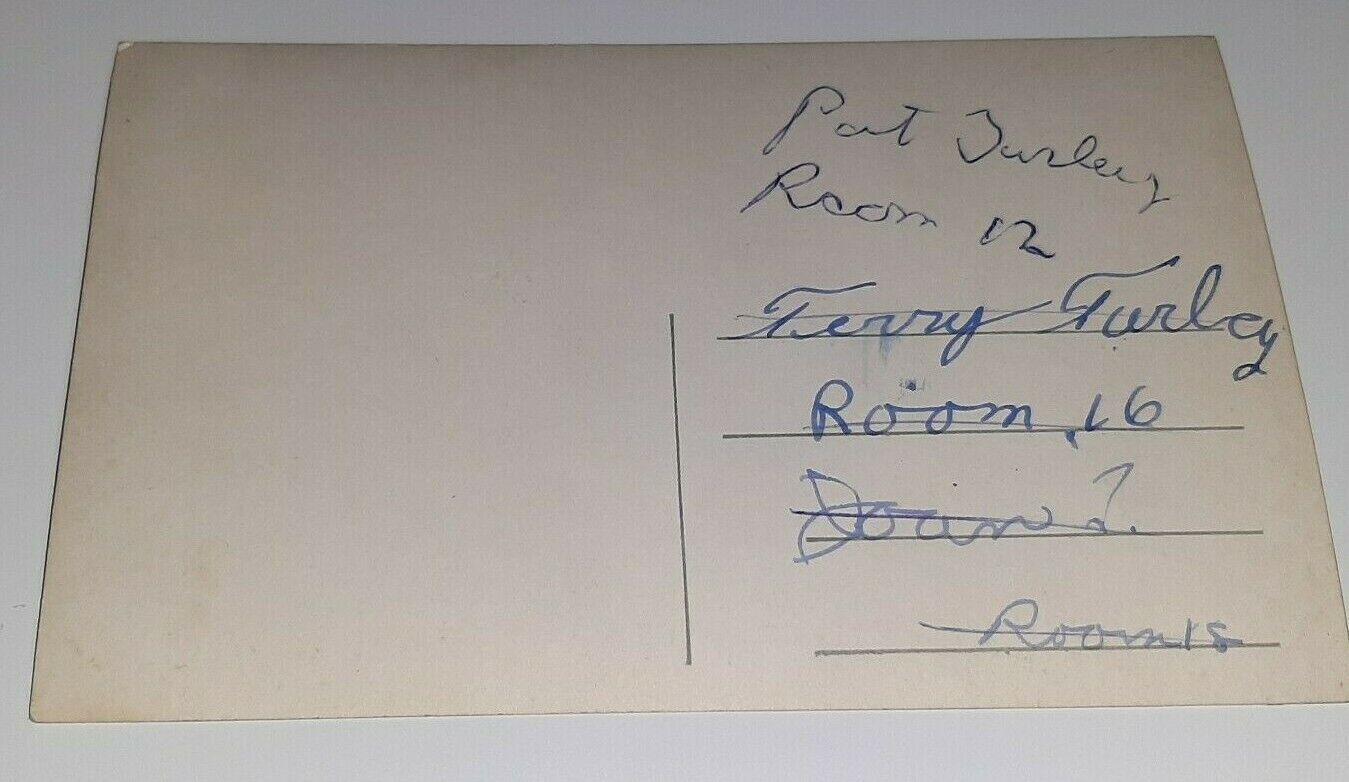 Pat Turley
Room 12
Terry Turley
Room 16
Room 18